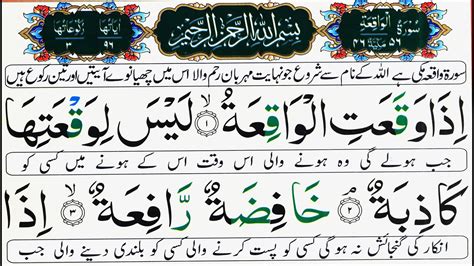 سُوْرَةُ الْوَاقِعَةِ ٥٦ مَكِّيَّةٌ ٤٦ بِسْمِ اللهِ الرَّحْمٰنِ الرَّحِيْمِ اٰيَاتُهَا ٩٦ رُكُوْعَاتُهَا ٣
سورۃ واقعہ مکی ہے اللہ کے نام سے شروع جو نہایت مہربان رحم والا اس میں چھیانوے آیتیں اور تین رکوع ہیں
اِذَا وَقَعَتِ الْوَاقِعَةُ ۙ‏﴿۱﴾ لَيْسَ لِوَقْعَتِهَا
جب ہولے گی وہ ہونے والی اس وقت اس کے ہونے میں کسی کو
كَاذِبَةٌ ۘ‏﴿۲﴾ خَافِضَةٌ رَّافِعَةٌ ۙ‏﴿۳﴾ اِذَا
انکار کی گنجائش نہ ہوگی کسی کو پست کرنے والی کسی کو بلندی دینے والی جب